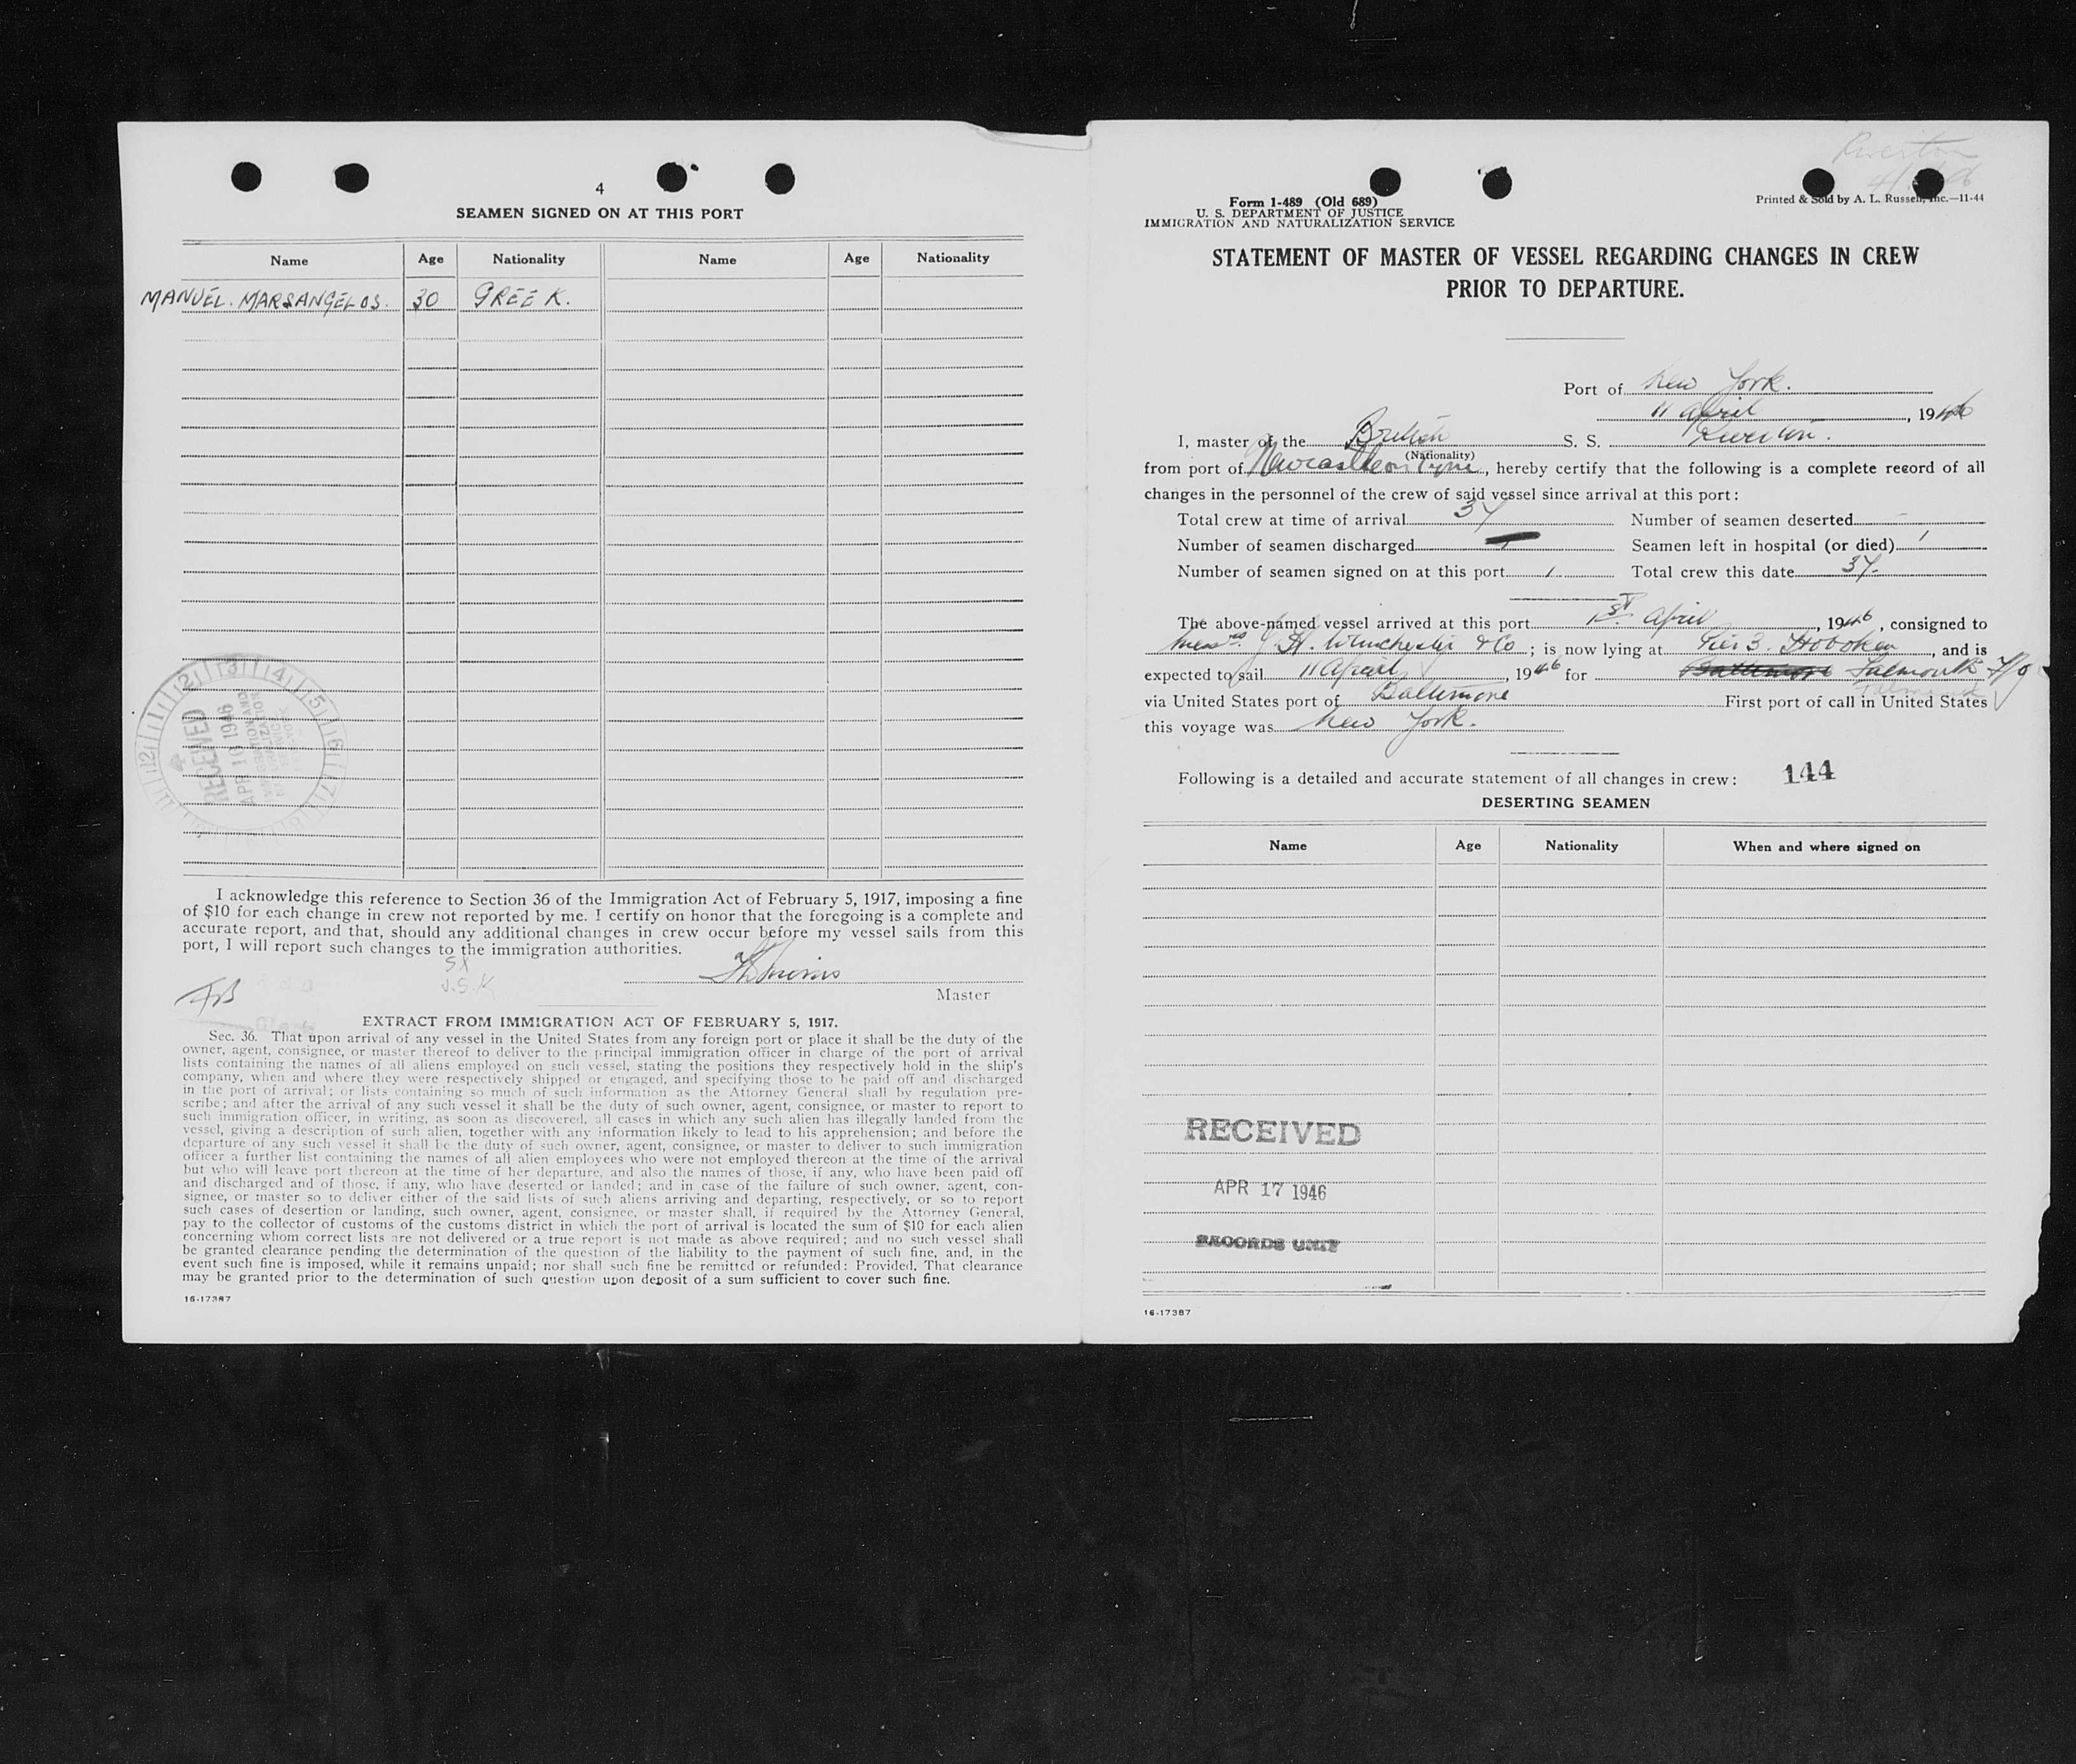 4
SEAMEN SIGNED ON AT THIS PORT
Name Age Nationality Name Age Nationality
MANUEL. MARSANGELOS. 30 GREEK.
RECEIVED
APR 16 1946
I acknowledge this reference to Section 36 of the Immigration Act of February 5, 1917, imposing a fine
of $10 for each change in crew not reported by me. I certify on honor that the foregoing is a complete and
accurate report, and that, should any additional changes in crew occur before my vessel sails from this
port, I will report such changes to the immigration authorities.
J.S.K
Master
EXTRACT FROM IMMIGRATION ACT OF FEBRUARY 5, 1917.
Sec. 36. That upon arrival of any vessel in the United States from any foreign port or place it shall be the duty of the
owner, agent, consignee, or master thereof to deliver to the principal immigration officer in charge of the port of arrival
lists containing the names of all aliens employed on such vessel, stating the positions they respectively hold in the ship's
company, when and where they were respectively shipped or engaged, and specifying those to be paid off and discharged
in the port of arrival; or lists containing so much of such information as the Attorney General shall by regulation pre-
scribe; and after the arrival of any such vessel it shall be the duty of such owner, agent, consignee, or master to report to
such immigration officer, in writing, as soon as discovered, all cases in which any such alien has illegally landed from the
vessel, giving a description of such alien, together with any information likely to lead to his apprehension; and before the
departure of any such vessel it shall be the duty of such owner, agent, consignee, or master to deliver to such immigration
officer a further list containing the names of all alien employees who were not employed thereon at the time of the arrival
but who will leave port thereon at the time of her departure, and also the names of those, if any, who have been paid off
and discharged and of those, if any, who have deserted or landed; and in case of the failure of such owner, agent, con-
signee, or master so to deliver either of the said lists of such aliens arriving and departing, respectively, or so to report
such cases of desertion or landing, such owner, agent, consignee, or master shall, if required by the Attorney General,
pay to the collector of customs of the customs district in which the port of arrival is located the sum of $10 for each alien
concerning whom correct lists are not delivered or a true report is not made as above required; and no such vessel shall
be granted clearance pending the determination of the question of the liability to the payment of such fine, and, in the
event such fine is imposed, while it remains unpaid; nor shall such fine be remitted or refunded: Provided, That clearance
may be granted prior to the determination of such question upon deposit of a sum sufficient to cover such fine.
16-17387
Riverton
Form 1-489 (Old 689)
U. S. DEPARTMENT OF JUSTICE
IMMIGRATION AND NATURALIZATION SERVICE
Printed & Sold by A. L. Russell, Inc.—11-44
STATEMENT OF MASTER OF VESSEL REGARDING CHANGES IN CREW
PRIOR TO DEPARTURE.
Port of New York.
11 April, 1946
I, master of the British S. S. Riverton.
(Nationality)
from port of Newcastle on Tyne, hereby certify that the following is a complete record of all
changes in the personnel of the crew of said vessel since arrival at this port:
Total crew at time of arrival 37 Number of seamen deserted -
Number of seamen discharged Seamen left in hospital (or died) 1
Number of seamen signed on at this port 1 Total crew this date 37.
The above-named vessel arrived at this port 1st April, 1946, consigned to
Messrs. J. H. Winchester & Co; is now lying at Pier 3. Hoboken, and is
expected to sail 11 April, 1946 for Baltimore Falmouth F/O
via United States port of Baltimore First port of call in United States
this voyage was New York.
Following is a detailed and accurate statement of all changes in crew: 144
DESERTING SEAMEN
Name Age Nationality When and where signed on
RECEIVED
APR 17 1946
RECORDS UNIT
16-17387